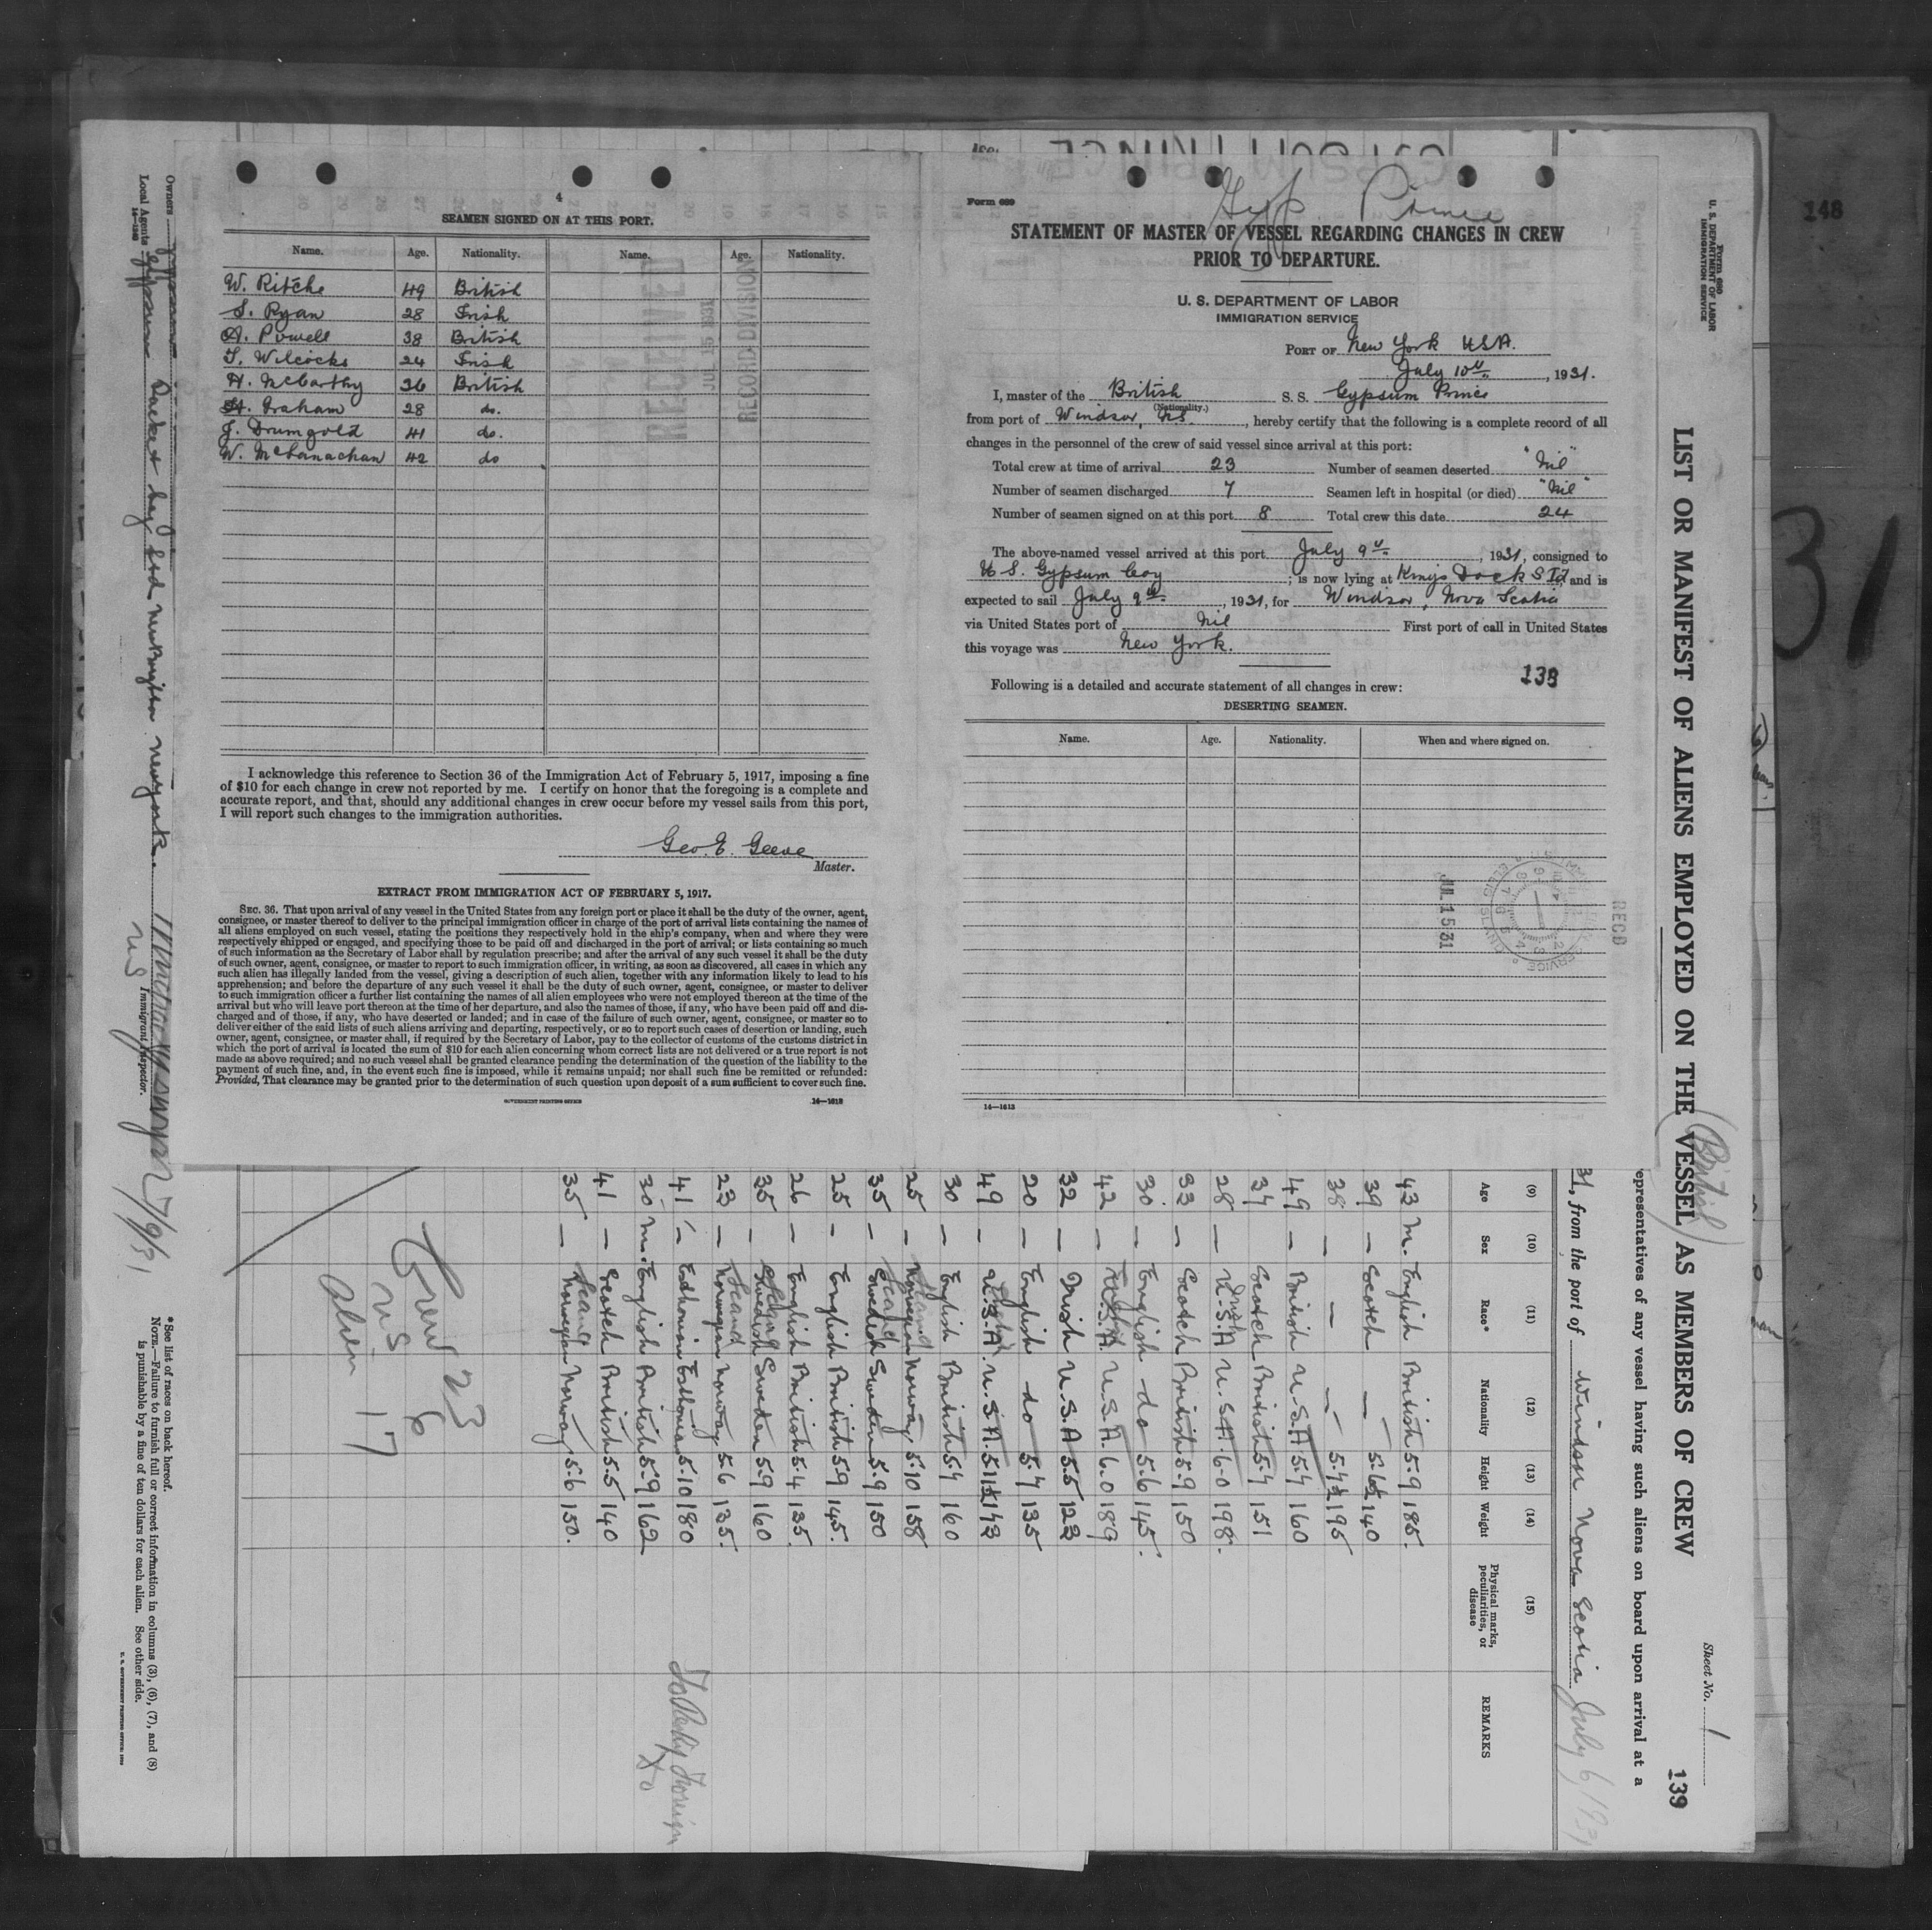 4
SEAMEN SIGNED ON AT THIS PORT.
Name. Age. Nationality. Name. Age. Nationality.
W. Ritche 49 British
S. Ryan 28 Irish
A. Powell 38 British
T. Wilcocks 24 Irish
H. McCarthy 36 British
H. Graham 28 do.
J. Drumgold 41 do.
W. McConachan 42 do
RECEIVED
JUL 15 1931
RECORD DIVISION
I acknowledge this reference to Section 36 of the Immigration Act of February 5, 1917, imposing a fine
of $10 for each change in crew not reported by me. I certify on honor that the foregoing is a complete and
accurate report, and that, should any additional changes in crew occur before my vessel sails from this port,
I will report such changes to the immigration authorities.
Geo. E. Geeve
Master.
EXTRACT FROM IMMIGRATION ACT OF FEBRUARY 5, 1917.
SEC. 36. That upon arrival of any vessel in the United States from any foreign port or place it shall be the duty of the owner, agent,
consignee, or master thereof to deliver to the principal immigration officer in charge of the port of arrival lists containing the names of
all aliens employed on such vessel, stating the positions they respectively hold in the ship's company, when and where they were
respectively shipped or engaged, and specifying those to be paid off and discharged in the port of arrival; or lists containing so much
of such information as the Secretary of Labor shall by regulation prescribe; and after the arrival of any such vessel it shall be the duty
of such owner, agent, consignee, or master to report to such immigration officer, in writing, as soon as discovered, all cases in which any
such alien has illegally landed from the vessel, giving a description of such alien, together with any information likely to lead to his
apprehension; and before the departure of any such vessel it shall be the duty of such owner, agent, consignee, or master to deliver
to such immigration officer a further list containing the names of all alien employees who were not employed thereon at the time of the
arrival but who will leave port thereon at the time of her departure, and also the names of those, if any, who have been paid off and dis-
charged and of those, if any, who have deserted or landed; and in case of the failure of such owner, agent, consignee, or master so to
deliver either of the said lists of such aliens arriving and departing, respectively, or so to report such cases of desertion or landing, such
owner, agent, consignee, or master shall, if required by the Secretary of Labor, pay to the collector of customs of the customs district in
which the port of arrival is located the sum of $10 for each alien concerning whom correct lists are not delivered or a true report is not
made as above required; and no such vessel shall be granted clearance pending the determination of the question of the liability to the
payment of such fine, and, in the event such fine is imposed, while it remains unpaid; nor shall such fine be remitted or refunded:
Provided, That clearance may be granted prior to the determination of such question upon deposit of a sum sufficient to cover such fine.
GOVERNMENT PRINTING OFFICE 14—1613
Form 689
Gyp. Prince
STATEMENT OF MASTER OF VESSEL REGARDING CHANGES IN CREW
PRIOR TO DEPARTURE.
U. S. DEPARTMENT OF LABOR
IMMIGRATION SERVICE
PORT OF New York USA.
July 10th, 1931.
I, master of the British S. S. Gypsum Prince
(Nationality.)
from port of Windsor, NS., hereby certify that the following is a complete record of all
changes in the personnel of the crew of said vessel since arrival at this port:
Total crew at time of arrival 23 Number of seamen deserted "Nil"
Number of seamen discharged 7 Seamen left in hospital (or died) "Nil"
Number of seamen signed on at this port 8 Total crew this date 24
The above-named vessel arrived at this port July 9th, 1931, consigned to
U S. Gypsum Coy; is now lying at Kings Dock S Id, and is
expected to sail July 9th, 1931, for Windsor, Nova Scotia
via United States port of Nil First port of call in United States
this voyage was New York.
138
Following is a detailed and accurate statement of all changes in crew:
DESERTING SEAMEN.
Name. Age. Nationality. When and where signed on.
JUL 15 31
RECD
14—1613
148
31
Form 680
U. S. DEPARTMENT OF LABOR
IMMIGRATION SERVICE
LIST OR MANIFEST OF ALIENS EMPLOYED ON THE VESSEL AS MEMBERS OF CREW
(British)
Sheet No. 1
139
epresentatives of any vessel having such aliens on board upon arrival at a
31, from the port of Windsor Nova Scotia July 6, 1931
(9) (10) (11) (12) (13) (14) (15)
Age Sex Race* Nationality Height Weight Physical marks, peculiarities, or disease REMARKS
43 M. English British 5.9 185.
39 — Scotch — 5.6½ 140
38 — — — 5.4½ 195
49 — British U.S.A 5.7 160
37 Scotch British 5.7 151
28 — U.S.A Irish U.S.A. 6.0 198.
33 — Scotch British 5.9 150
30 — English do 5.6 145.
42 — U.S.A. U.S.A. 6.0 189
32 — Irish U.S.A 5.5 123
20 — English do 5.7 135
49 — U.S.A. U.S.A. 5.11½ 143
30 — English British 5.7 160
25 — Norwegian Scand Norway 5.10 158
35 — Swedish Scand Sweden 5.9 150
25 — English British 5.9 145.
26 — English British 5.4 135.
35 — Swedish Scand Sweden 5.9 160
23 — Norwegian Scand Norway 5.6 135.
41 — Esthonian Esthonia 5.10 180 To Reship Foreign
30 M. English British 5.9 162 do
41 — Scotch British 5.5 140
35 — Norwegian Scand Norway 5.6 150.
Crew 23
US 6
Alien 17
Owners
Local Agents
14—1240
Immigrant Inspector.
7/9/31
*See list of races on back hereof.
NOTE.—Failure to furnish full or correct information in columns (3), (6), (7), and (8)
is punishable by a fine of ten dollars for each alien. See other side.
U. S. GOVERNMENT PRINTING OFFICE